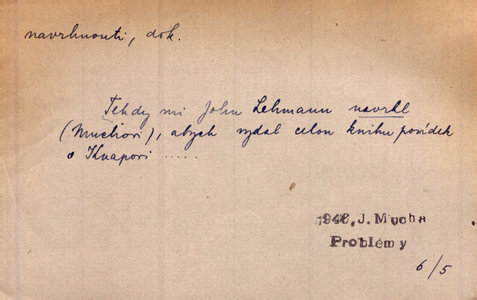 navrhnouti, dok.
Tehdy mi John Lehmann navrhl
(Muchovi), abych vydal celou knihu povídek
o Knapovi .....
1948, J. Mucha
Problémy
6/5